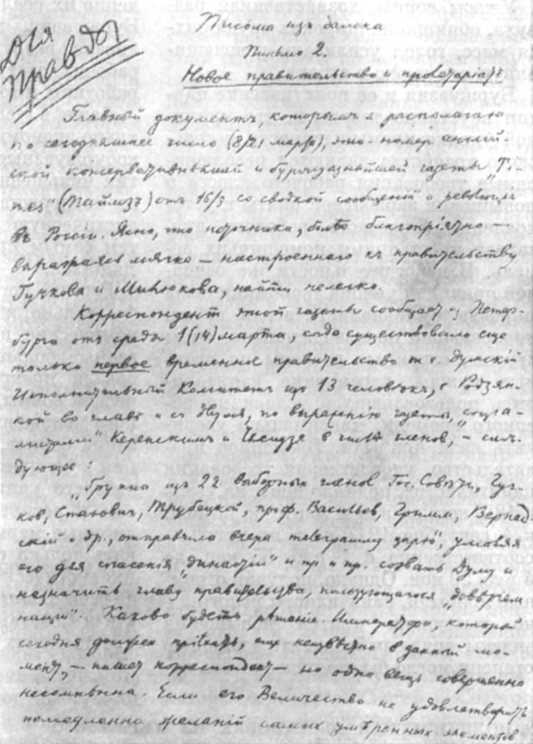 Для
Правды
Письма изъ далека
Письмо 2.
Новое правительство и пролетаріатъ
Главный документъ, которымъ я располагаю
по сегодняшнее число (8/21 марта), это – номеръ англій-
ской консервативнѣйшей и буржуазнѣйшей газеты „Ti-
mes“ (Таймсъ) отъ 16/3 со сводкой сообщений о революціи
въ Россіи. Ясно, что источника, болѣе благопріятно —
выражаясь мягко — настроеннаго къ правительству
Гучкова и Милюкова, найти нелегко.
Корреспондентъ этой газеты сообщаетъ изъ Петер-
бурга отъ среды 1 (14) марта, когда существовало еще
только первое временное правительство т. е. думскій
Исполнительный Комитетъ изъ 13 человѣкъ, с Родзян-
кой во главе и съ двумя, по выраженію газеты, „соціа-
листами“ Керенскимъ и Чхеидзе в числѣ членовъ, – слѣ-
дующее:
„Группа изъ 22 выборных членов Гос. Совѣта, Гуч-
ков, Стахович, Трубецкой, проф. Васильев, Гримм, Вернад-
скій и др., отправила вчера телеграмму царю“, умоляя
его для спасенія „династіи“ и пр. и пр. созвать Думу и
назначить главу правительства, пользующагося „довѣріем
націи“. Каково будетъ рѣшеніе Императора, который
сегодня долженъ пріѣхать, еще неизвѣстно в данный мо-
ментъ, — пишет корреспондент — но одна вещь совершенно
несомнѣнна. Если его Величество не удовлетворитъ
немедленно желаній самых умѣренныхъ элементов